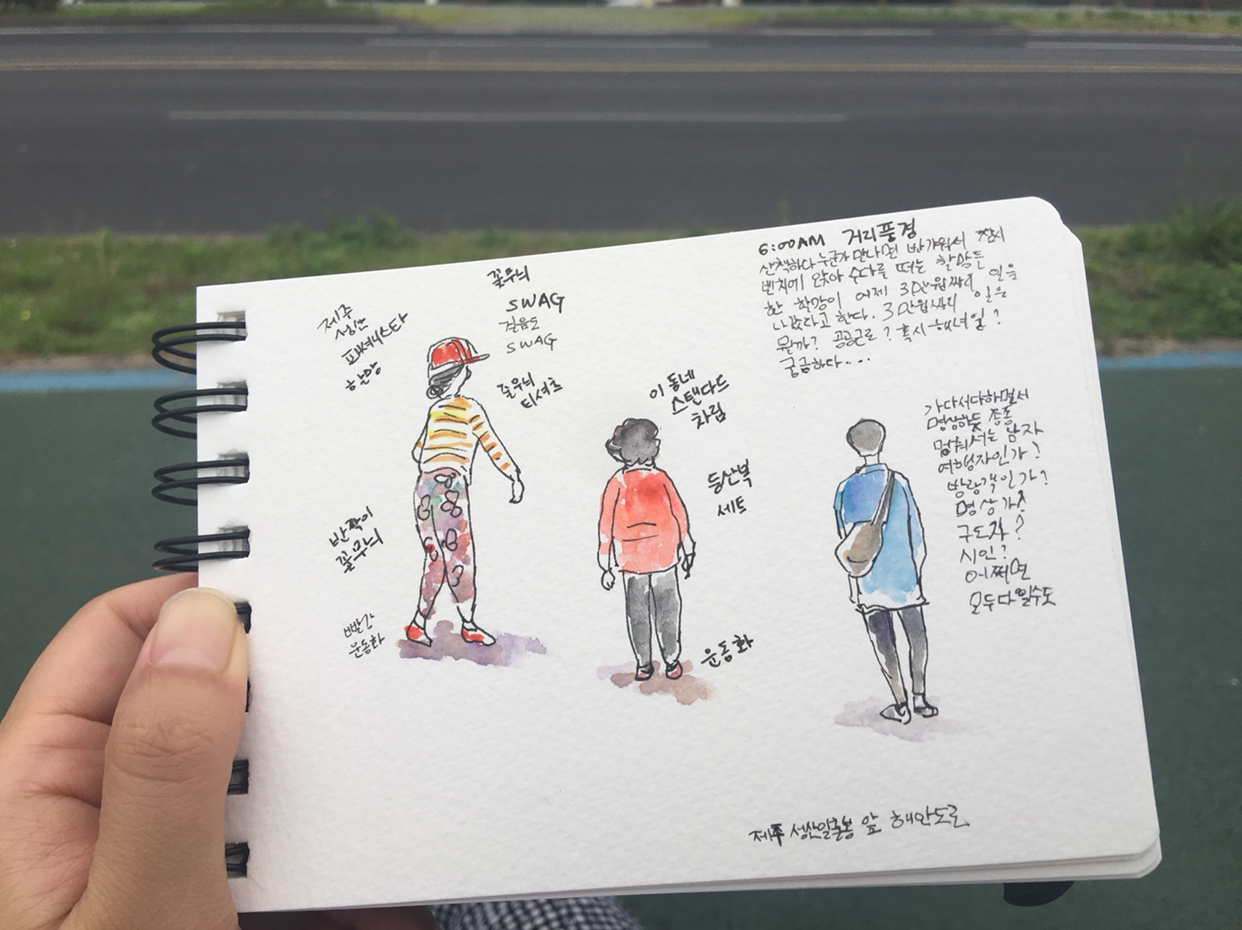 제주
성산
패셔니스타
할망
꽃무늬
SWAG
걸음도
SWAG
꽃무늬
티셔츠
반짝이
꽃무늬
빨간
운동화
이 동네
스탠다드
차림
등산복
세트
운동화
6:00AM 거리풍경
산책하다 누군가 만나면 반가워서 잠시
벤치에 앉아 수다를 떠는 할망들
한 할망이 어제 3만원짜리 일을
나갔다고 한다. 3만원짜리 일은
뭘까? 공공근로? 혹시 해녀일?
궁금하다...
가다서다하면서
명상하듯 종종
멈춰서는 남자
여행자인가?
방랑객인가?
명상가?
구도자?
시인?
어쩌면
모두다일수도
제주 성산일출봉 앞 해안도로